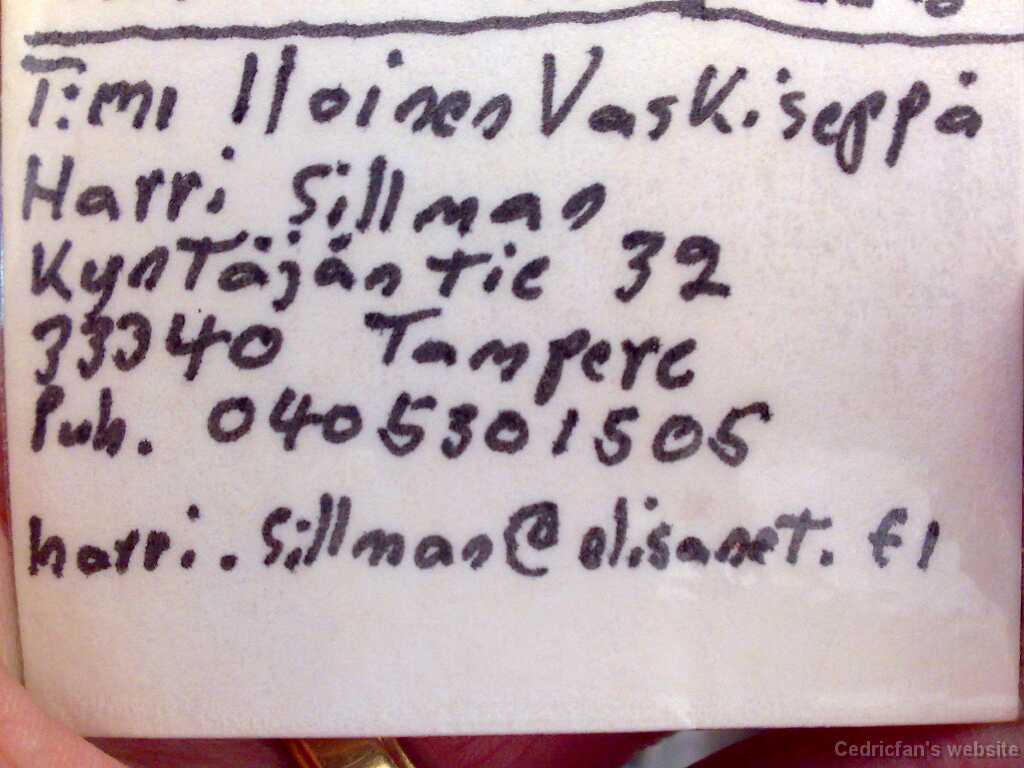 T:mi Iloinen Vaskiseppä
Harri Sillman
Kyntäjäntie 32
33340 Tampere
Puh. 0405301505
harri.sillman@elisanet.fi
Cedricfan's website